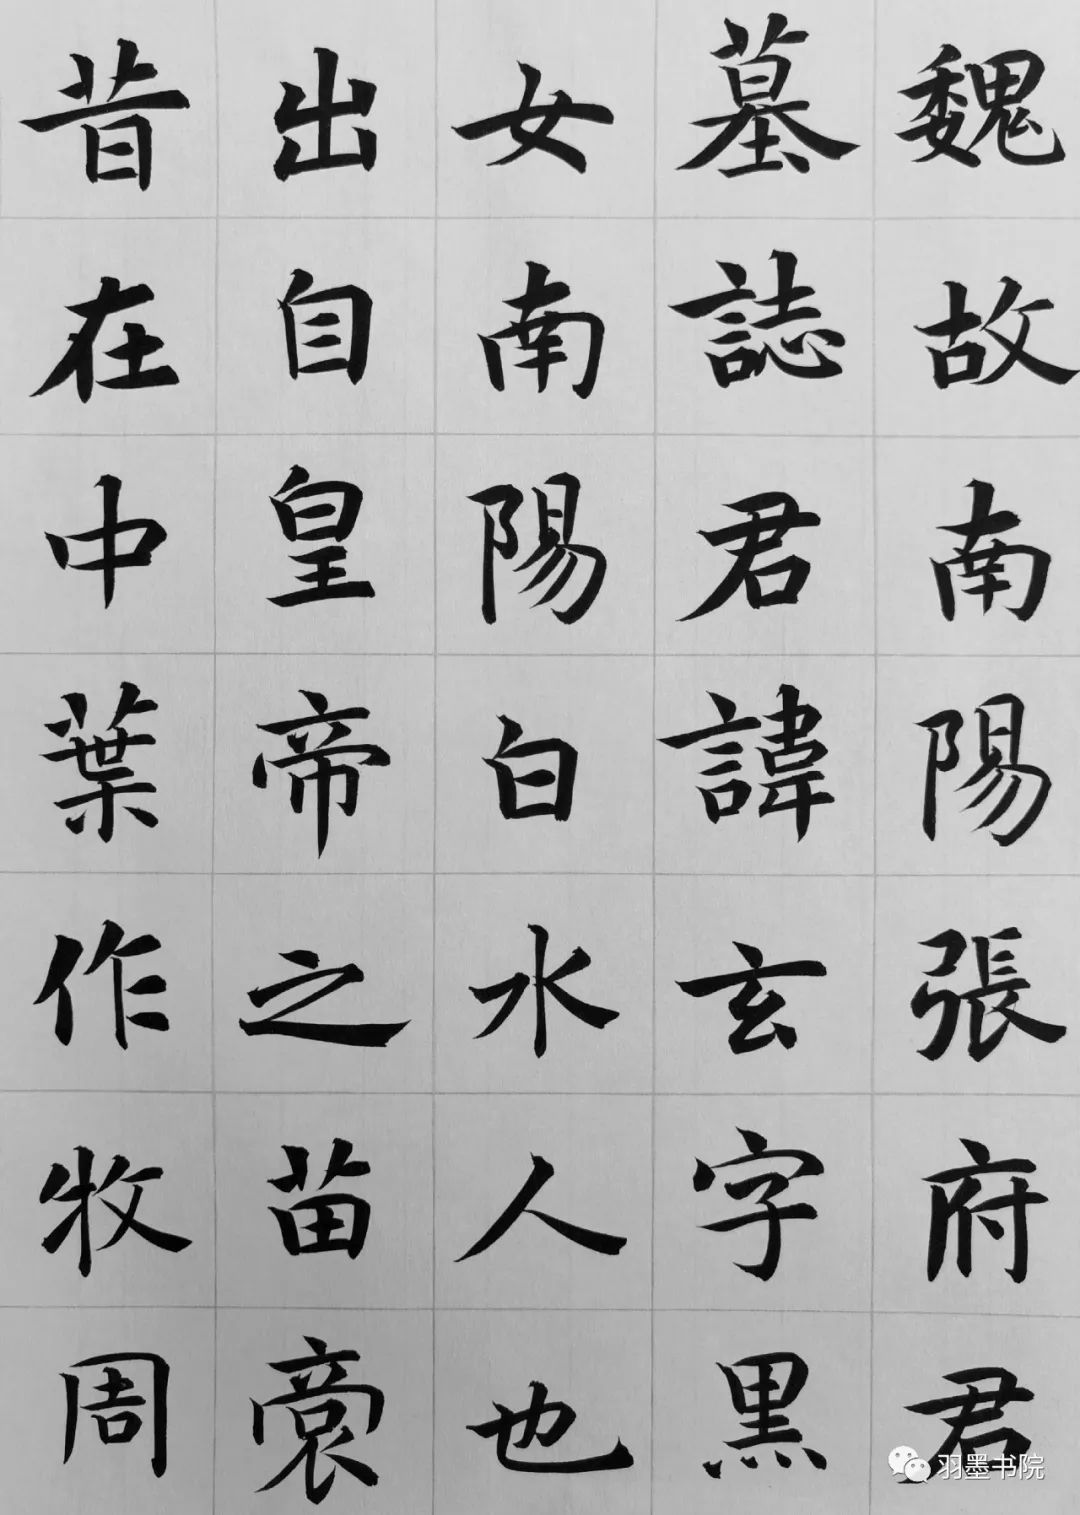 魏故南陽張府君
墓誌君諱玄字黑
女南陽白水人也
出自皇帝之苗裔
昔在中葉作牧周
羽墨书院